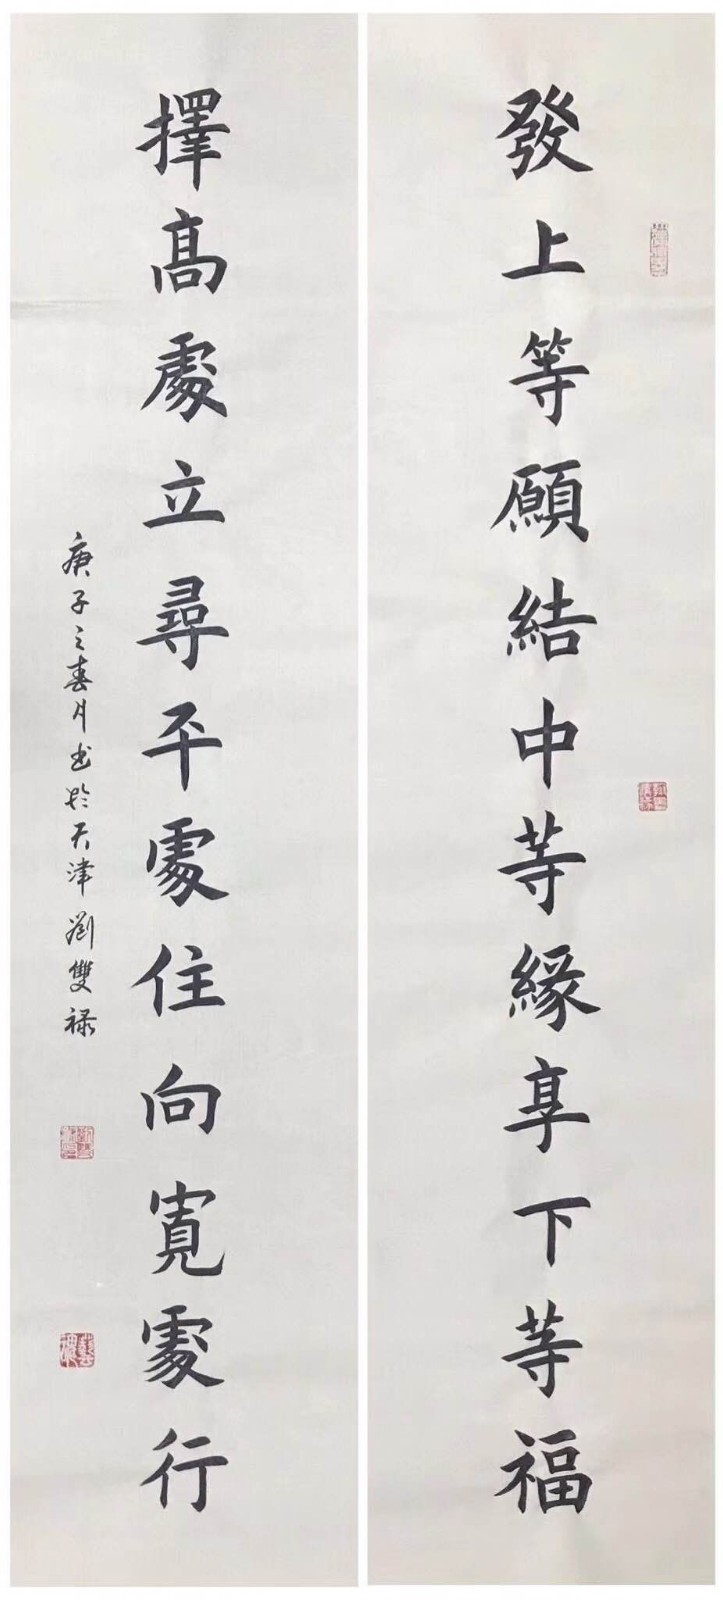 發上等願結中等緣享下等福
擇高處立尋平處住向寬處行
庚子之春月书於天津劉雙祿